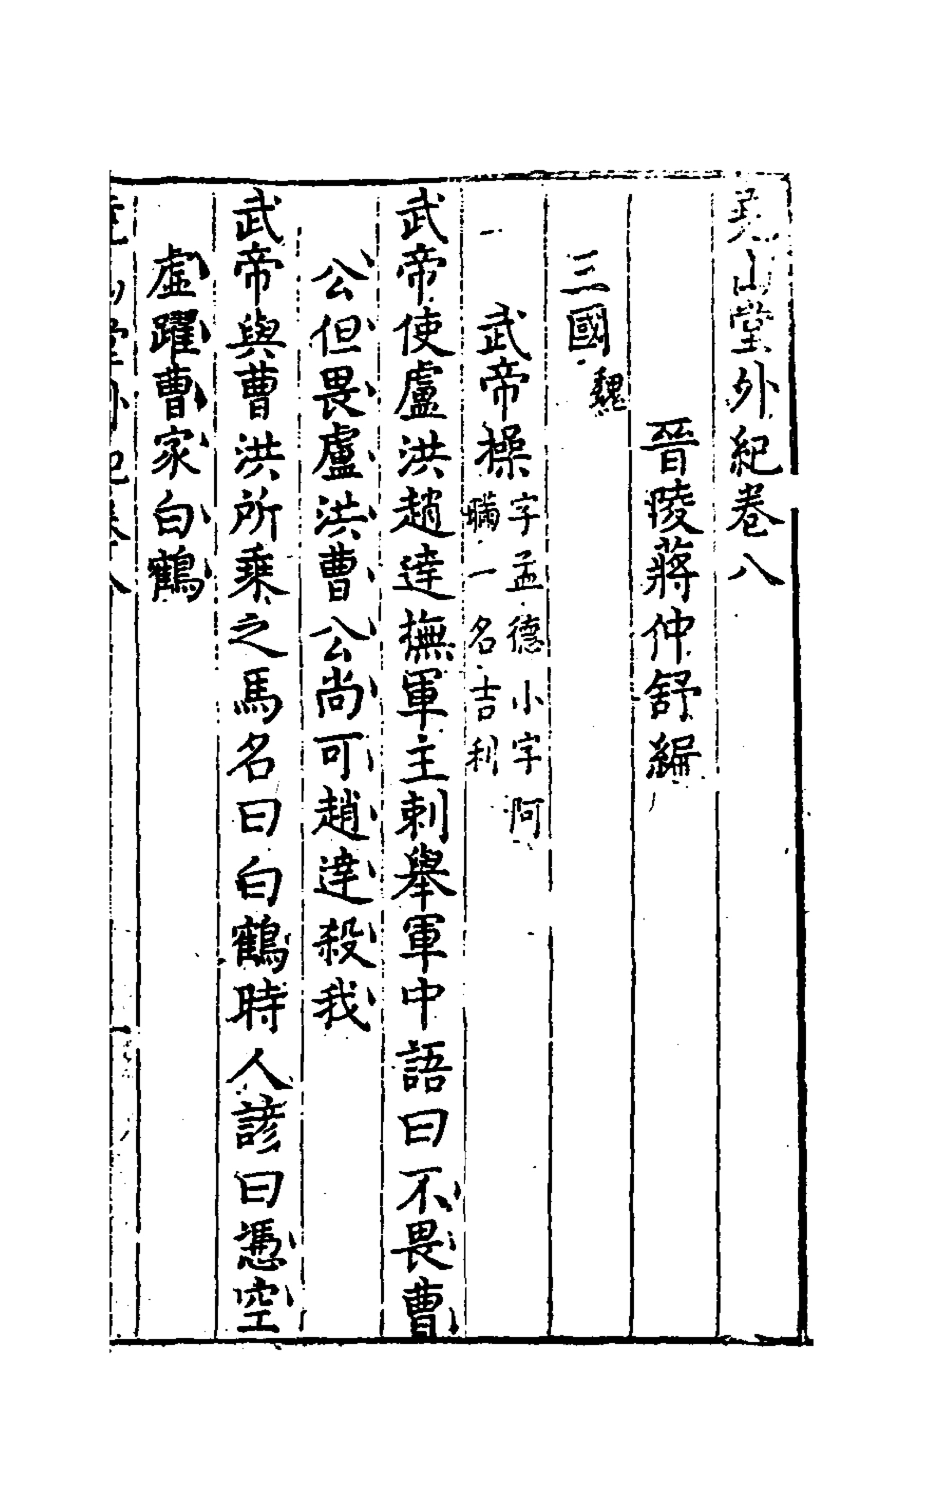 堯山堂外紀卷八
晉陵蔣仲舒編
三國魏
武帝操字孟德小字阿瞞一名吉利
武帝使盧洪趙達撫軍主刺舉軍中語曰不畏曹
公但畏盧洪曹公尚可趙達殺我
武帝與曹洪所乘之馬名曰白鶴時人諺曰憑空
虛躍曹家白鶴